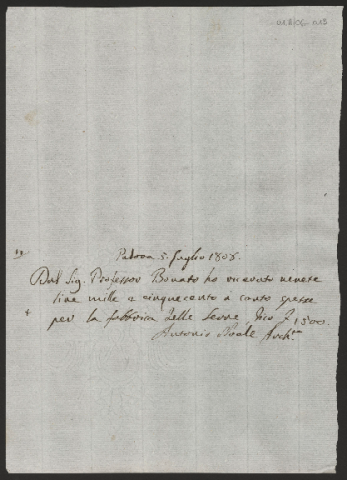 Padova 5. Luglio 1806.
Dal Sig. Professor Bonato ho ricevuto venete
lire mille e cinquecento a conto spese
per la fabbrica delle Serre, dico L 1500.
Antonio Noale Arch.